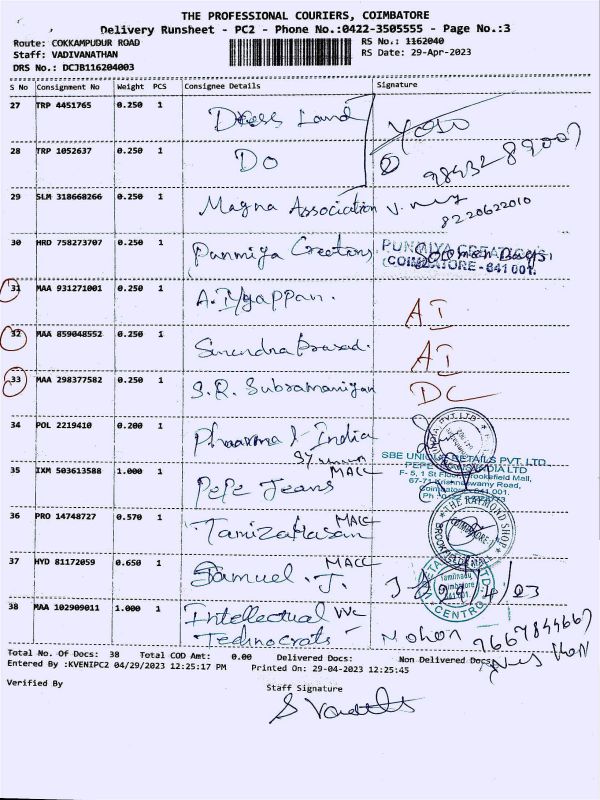 THE PROFESSIONAL COURIERS, COIMBATORE
Delivery Runsheet - PC2 - Phone No.:0422-3505555 - Page No.:3
Route: COKKAMPUDUR ROAD RS No.: 1162040
Staff: VADIVANATHAN RS Date: 29-Apr-2023
DRS No.: DCJB116204003
S No Consignment No Weight PCS Consignee Details Signature
27 TRP 4451765 0.250 1 Dress Land
28 TRP 1052637 0.250 1 DO
29 SLM 318668266 0.250 1 Magna Association 8220622010
30 HRD 758273707 0.250 1 Punmiya Creations PUNMIYA CREATIONS
COIMBATORE - 641 001.
31 MAA 931271001 0.250 1 A. Iyyappan. AI
32 MAA 859048552 0.250 1 Surendra Prasad. AI
33 MAA 298377582 0.250 1 S.R. Subramaniyan DC
34 POL 2219410 0.200 1 Pharma & India
SBE UNIQUE DETAILS PVT. LTD.
35 IXM 503613588 1.000 1 Pepe Jeans MALL
F- 5, 1 St Floor, Brookefield Mall,
67-71 Krishnaswamy Road,
Coimbatore - 641 001.
36 PRO 14748727 0.570 1 MALL THE RAYMOND SHOP
COIMBATORE
BROOKEFIELDS MALL
37 HYD 81172059 0.650 1 Samuel. J. MALL
Tamilnadu
Coimbatore
CENTRO
38 MAA 102909011 1.000 1 Intellectual
Technocrats Mohan
Total No. Of Docs: 38 Total COD Amt: 0.00 Delivered Docs: Non Delivered Docs:
Entered By :KVENIPC2 04/29/2023 12:25:17 PM Printed On: 29-04-2023 12:25:45
Verified By Staff Signature